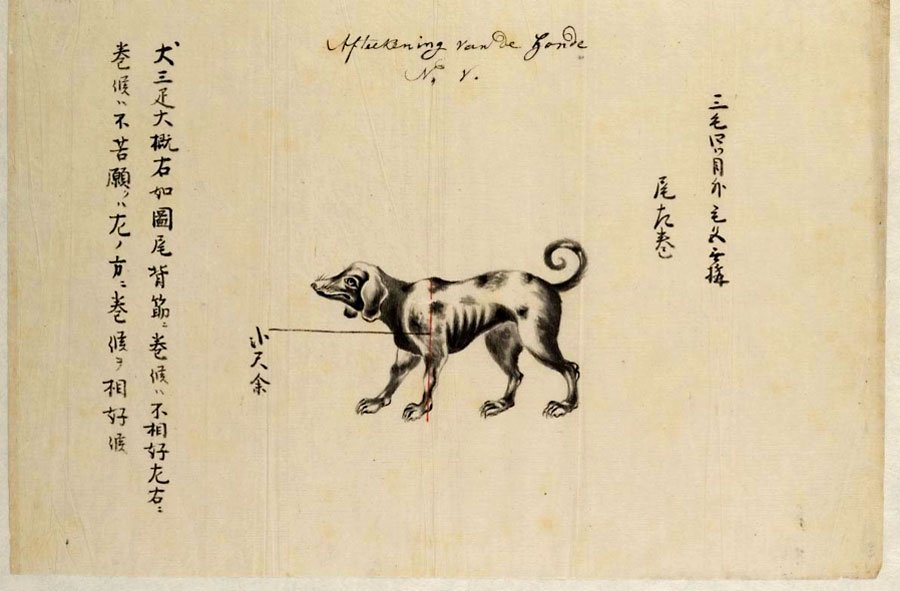 Afteekening van de Honde
N. V.
三毛
尾左巻
尺余
犬三疋大概右如圖尾背筋ニ巻候ハ不相好左右ニ
巻候ハ不苦願クハ左ノ方ニ巻候ヲ相好候